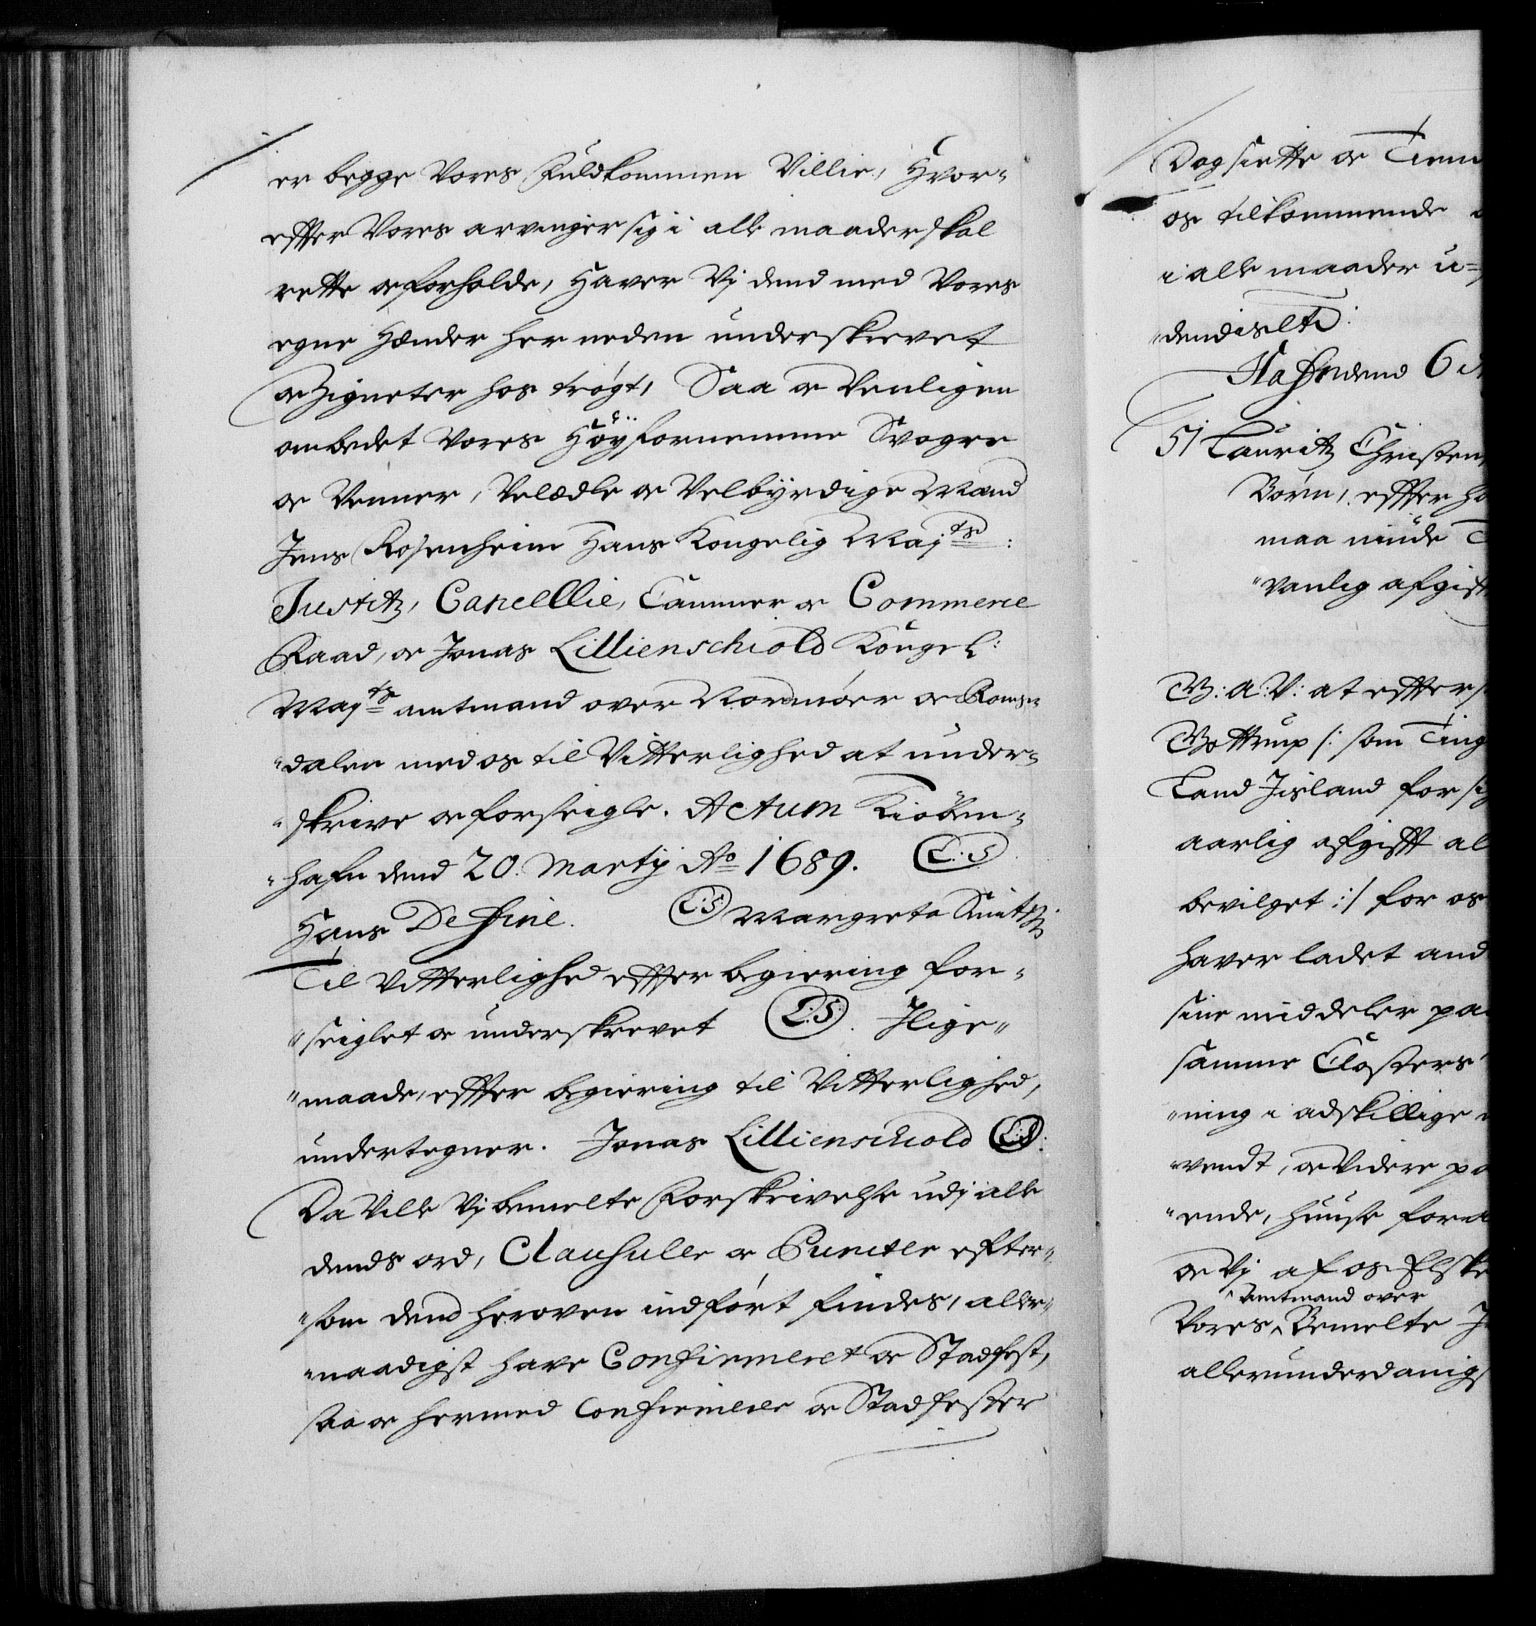 er begge Vores Fuldkommen Villie, Hvor-
effter Vores arvinger sig i alle maader skal
rette oc forholde, Haver Vj dend med Vores
egne Hænder her neden underskrevet
oc Zigneter hos trøgt, Saa oc Venligen
ombedet Vores Høyfornemme Svogre
oc Venner, Velædle oc Velbyrdige Mænd
Jens Rosenheim Hans Kongelig Maj:ts:
Justitz, Cancellie, Cammer oc Commerce
Raad, oc Jonas Lillienschiold Kongel:
Maj:ts amtmand over Nordmøer oc Roms-
"dalen med os til Vitterlighed at under-
"skrive oc forseigle. Actum Kiøben-
"hafn dend 20. Martij Ao 1689. L:S.
Hans De Hine. L:S Margreta
Til Vitterlighed effter begiering for-
"seiglet oc underskrevet L:S. Jlige-
"maade, effter begiering til Vitterlighed,
undertegner. Jonas Lillienschiold L:S:
Da Ville Vj bemelte Forskrivelse udj alle
dends ord, Clausuler oc Puncter efter-
"som dend heroven indført findes, aller-
"naadigst have Confirmeret oc Stadfest,
saa oc hermed Confirmerer oc Stadfester
Dog siette oc Tiem
os tilkommende
i alle maader u=
"dendis etc:
Hafn dend 6
51 Lauritz Christens
Børn, effter ha
maa nÿde
"vanlig afgift
G: A: V: at efters
Gottrup /: som Ting
Land Jisland for sig
aarlig afgifft al
bevilget :/ for os
haver ladet and
sine middeler paa
samme Closters
"ning i adskillige
"vendt, oc Videre pa
"ende, huuse fora
oc Vj af os Elske
^Amtmand over
Vores ^ Bemelte J
allerunderdanigs